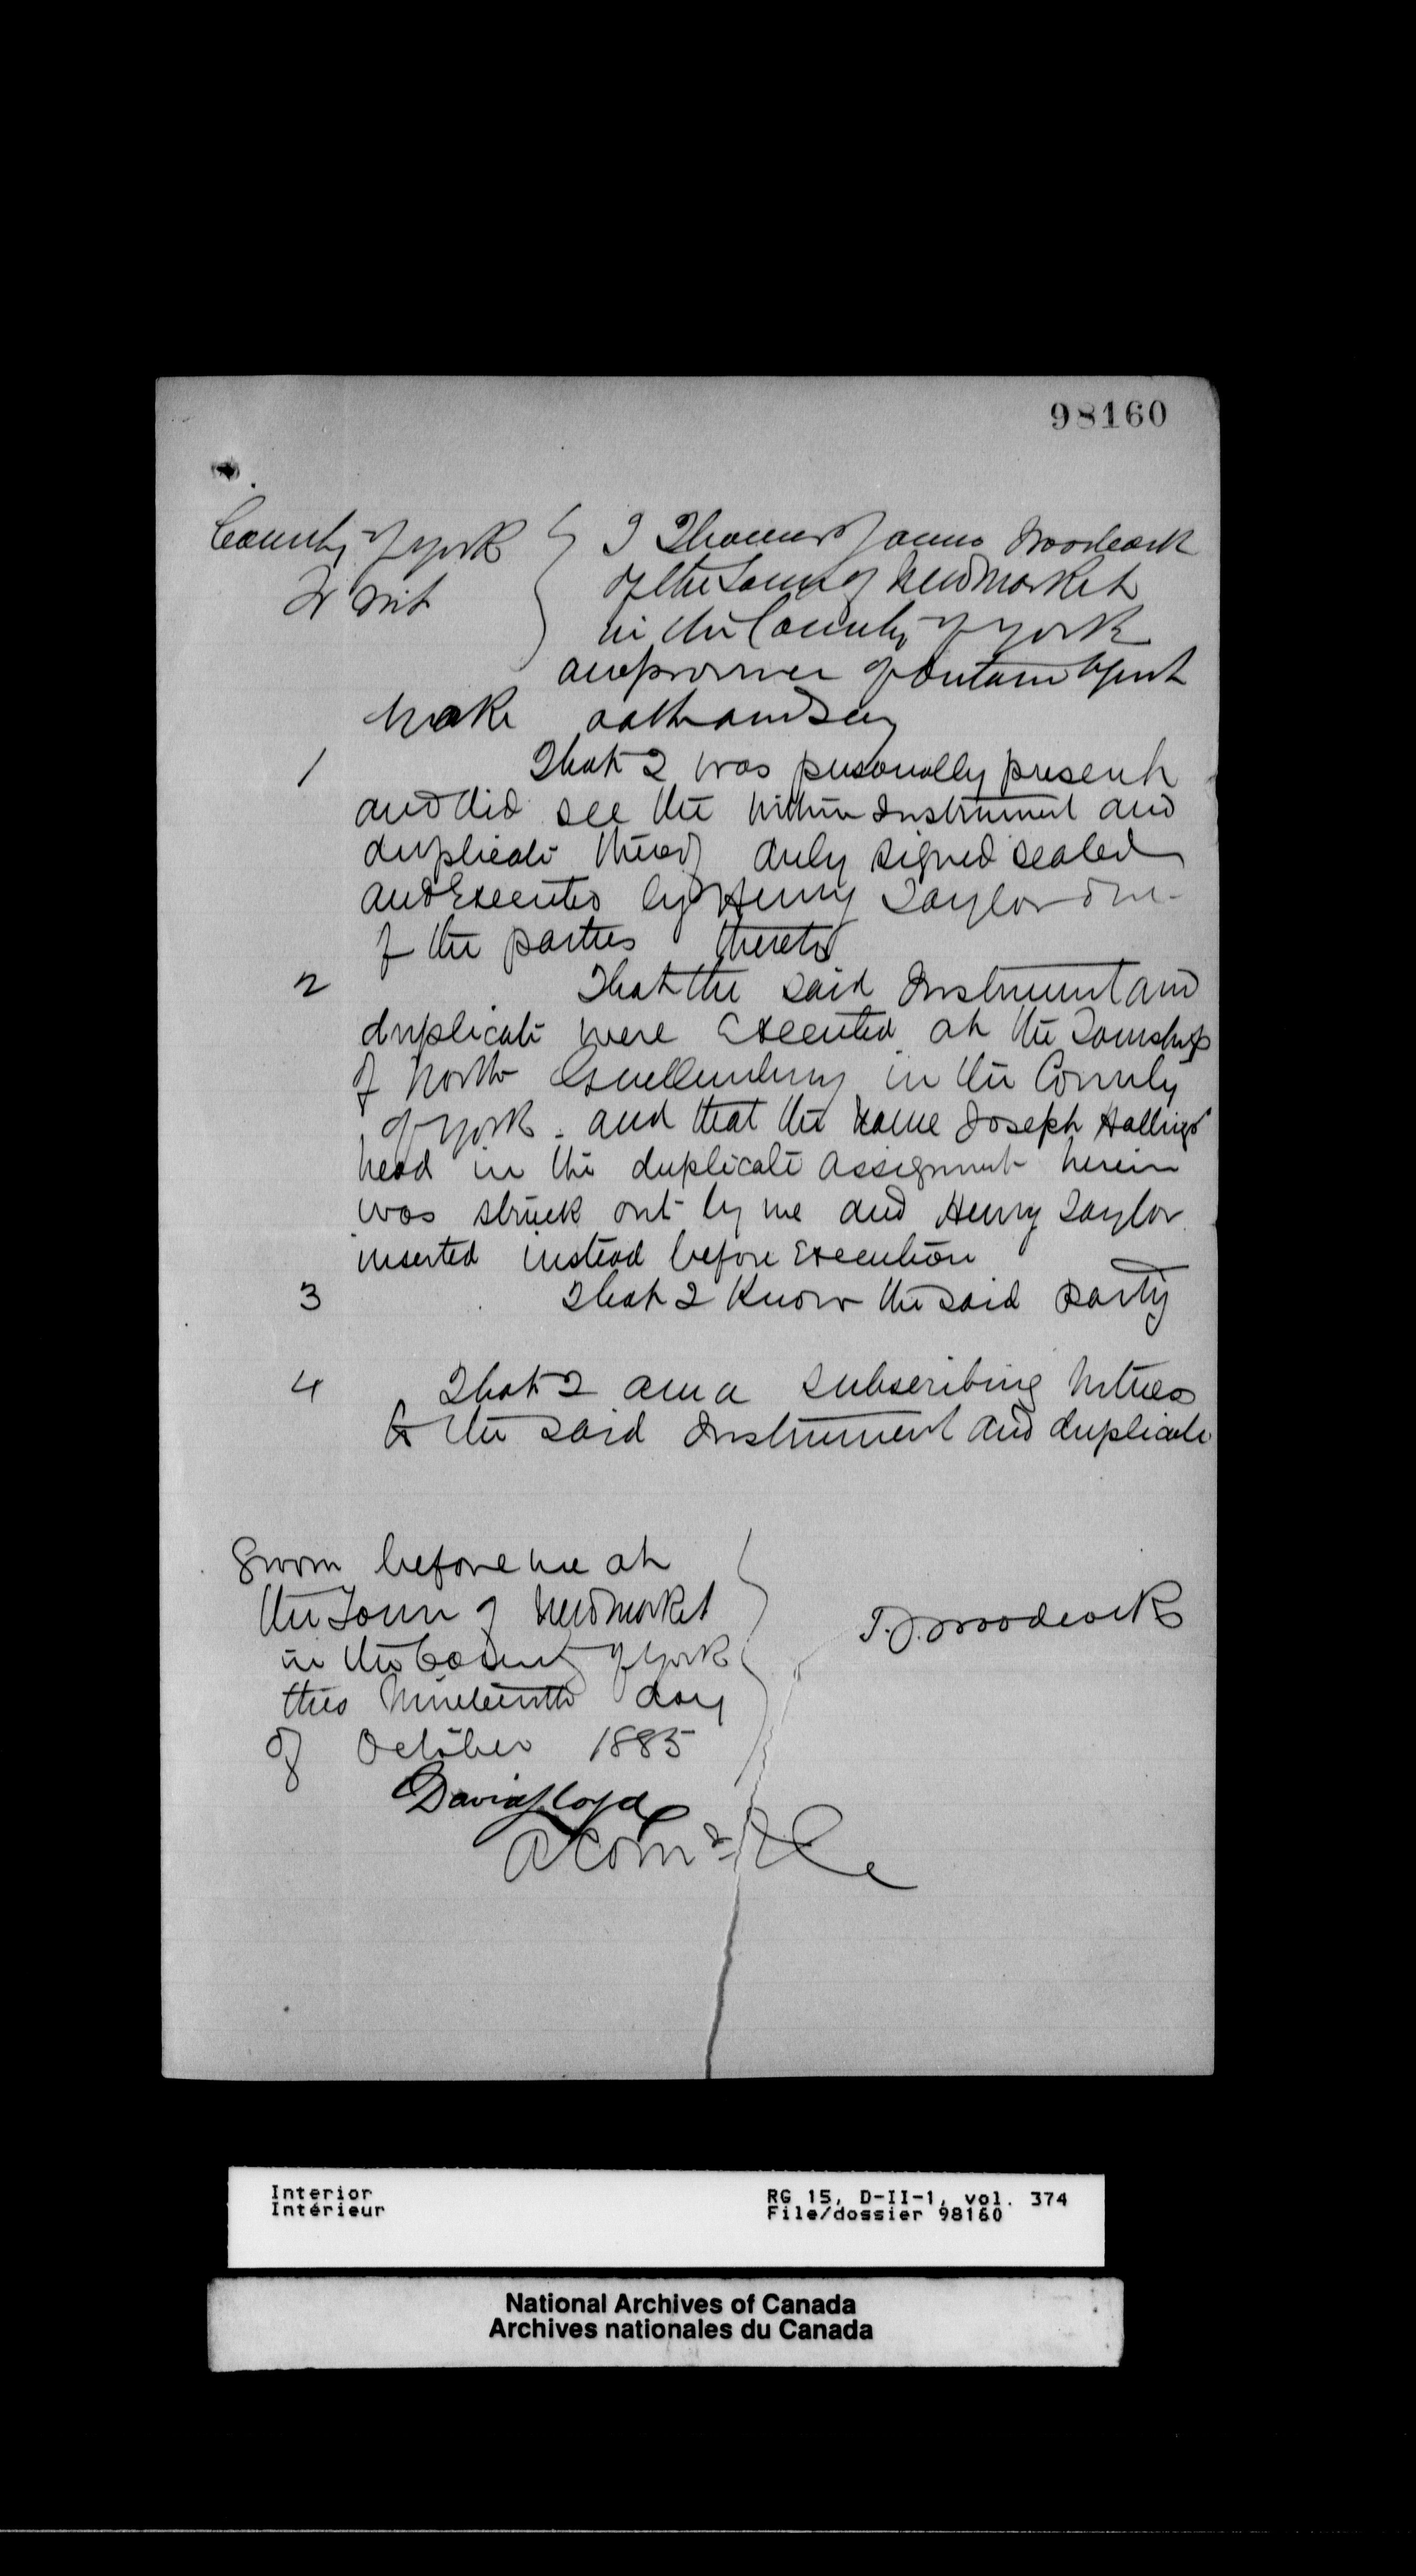 98160
County of York
To Wit
I Thomas James Woodcock
of the Town of Newmarket
in the County of York
and province of Ontario Agent
make oath and say
1 That I was personally present
and did see the within Instrument and
duplicate thereof duly signed sealed
and Executed by Henry Taylor one
of the parties thereto
2 That the said Instrument and
duplicate were Executed at the Township
of North Gwillimbury in the County
of York - and that the name Joseph Hollings
head in the duplicate assignment herein
was struck out by me and Henry Taylor
inserted instead before Execution
3 That I know the said party
4 That I am a subscribing witness
to the said Instrument and duplicate
Sworn before me at
the Town of Newmarket
in the County of York
this Nineteenth day
of October 1885
T. J. Woodcock
David Lloyd
A Com &c
Interior
Intérieur
RG 15, D-II-1, vol. 374
File/dossier 98160
National Archives of Canada
Archives nationales du Canada